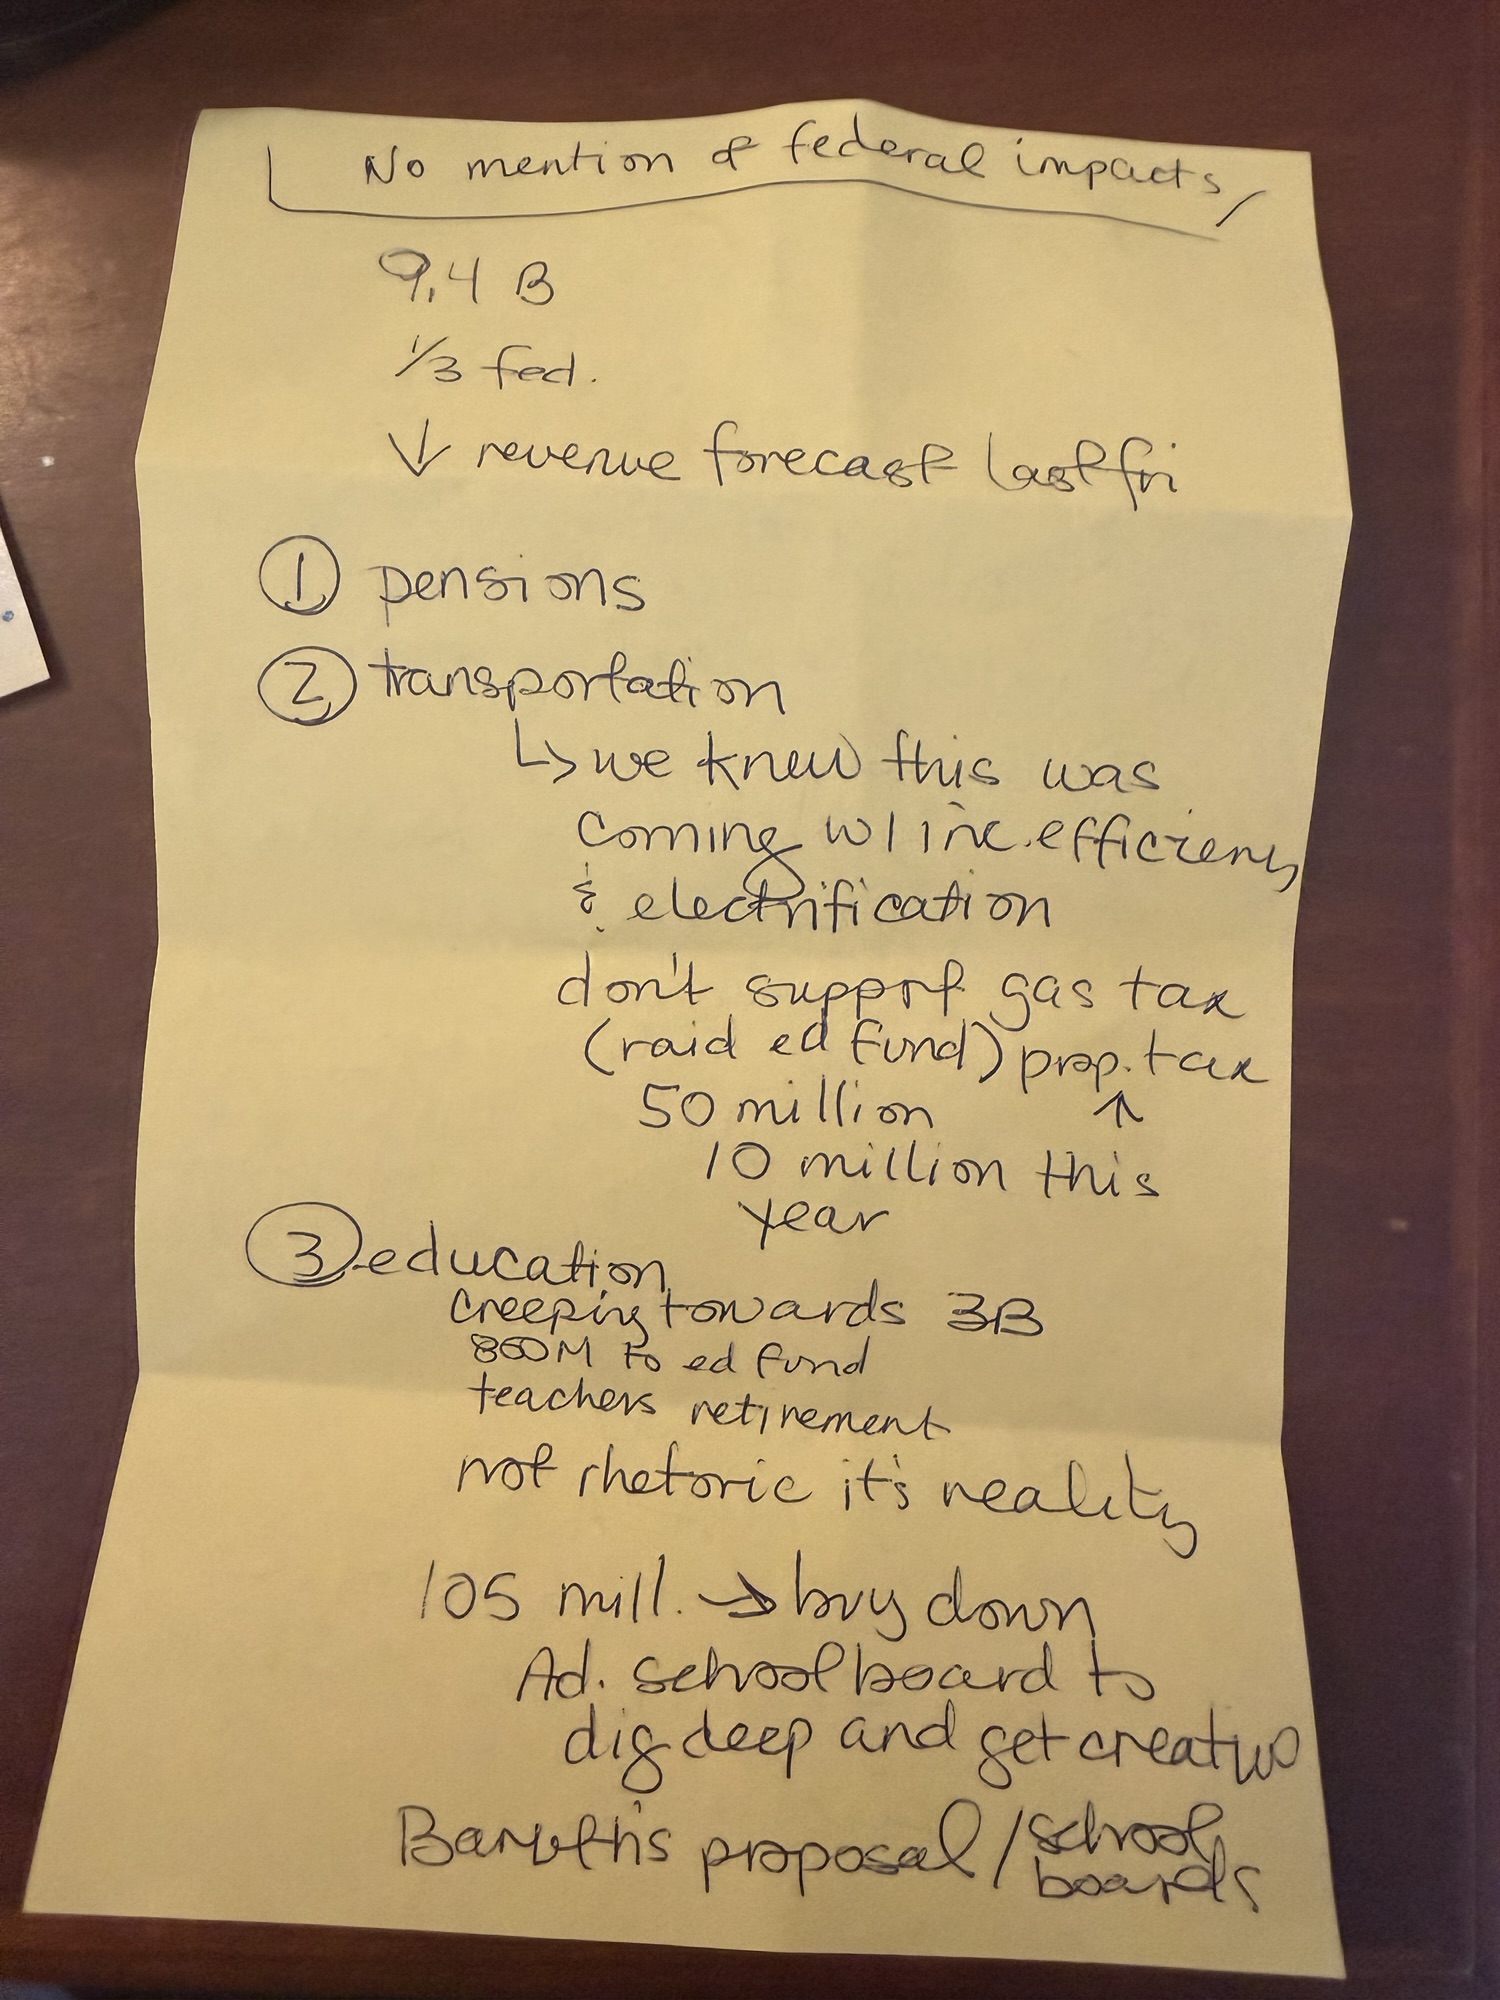 No mention of federal impacts
9.4 B
1/3 fed.
↓ revenue forecast last fri
① pensions
② transportation
↳ we knew this was
coming w/ inc. efficiency
& electrification
don't support gas tax
(raid ed fund) prop. tax
50 million ↑
10 million this
year
③ education
creeping towards 3B
860M to ed fund
teachers retirement
not rhetoric it's reality
105 mill. → buy down
Ad. school board to
dig deep and get creative
Baruth's proposal / school
boards